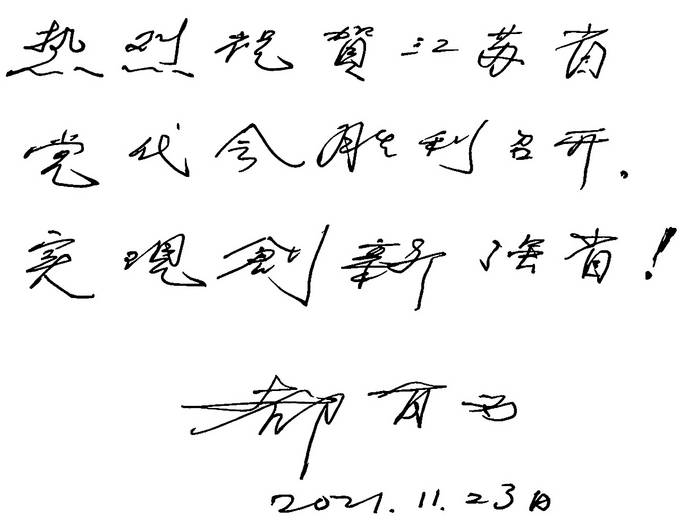 热烈祝賀江苏省
党代会胜利召开.
实現創新强省!
都有为
2021.11.23日